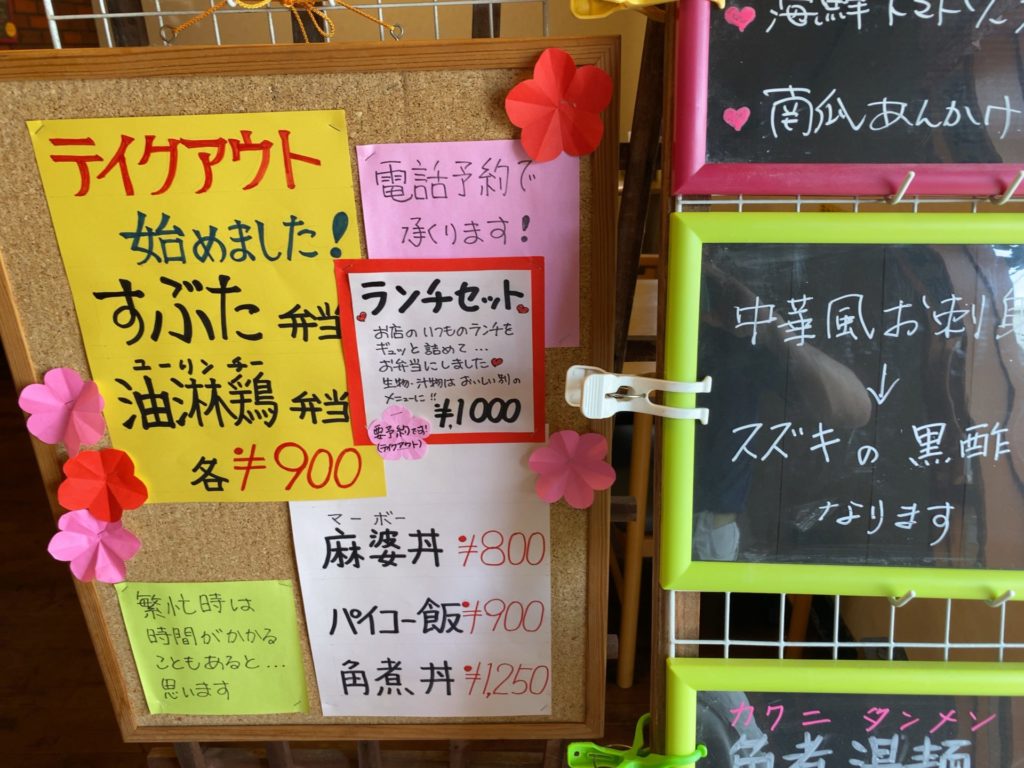 テイクアウト
始めました!
すぶた 弁当
ユーリンチー
油淋鶏 弁当
各 ¥900
電話予約で
承ります!
ランチセット
お店のいつものランチを
ギュッと詰めて...
お弁当にしました
生物・汁物は おいしい別の
メニューに!!
¥1,000
要予約です!
(テイクアウト)
マーボー
麻婆丼 ¥800
パイコー飯 ¥900
角煮丼 ¥1,250
繁忙時は
時間がかかる
こともあると...
思います
海鮮トマト
南瓜あんかけ
中華風お刺身
↓
スズキの黒酢
なります
カクニ タンメン
角煮湯麺